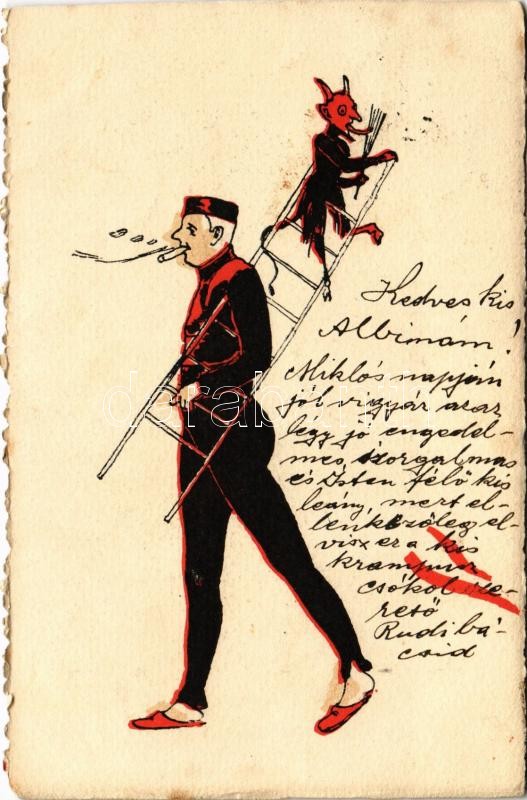 Kedves kis
Albinám!
Miklós napján
jól vigyáz azaz
légy jó engedel-
mes, szorgalmas
és Isten félő kis
leány, mert el-
lenkezőleg el-
visz ez a kis
krampusz
csókol sze-
rető
Rudi bá-
csid
darabanth